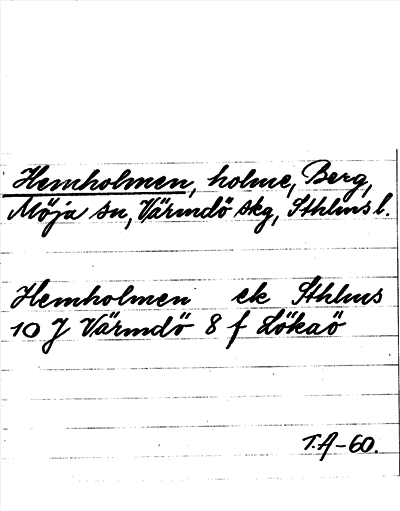 Hemholmen, holme, Berg,
Möja sn, Värmdö skg, Sthlms l.
Hemholmen ek Sthlms
10 J Värmdö 8 f Lökaö
T.A-60.